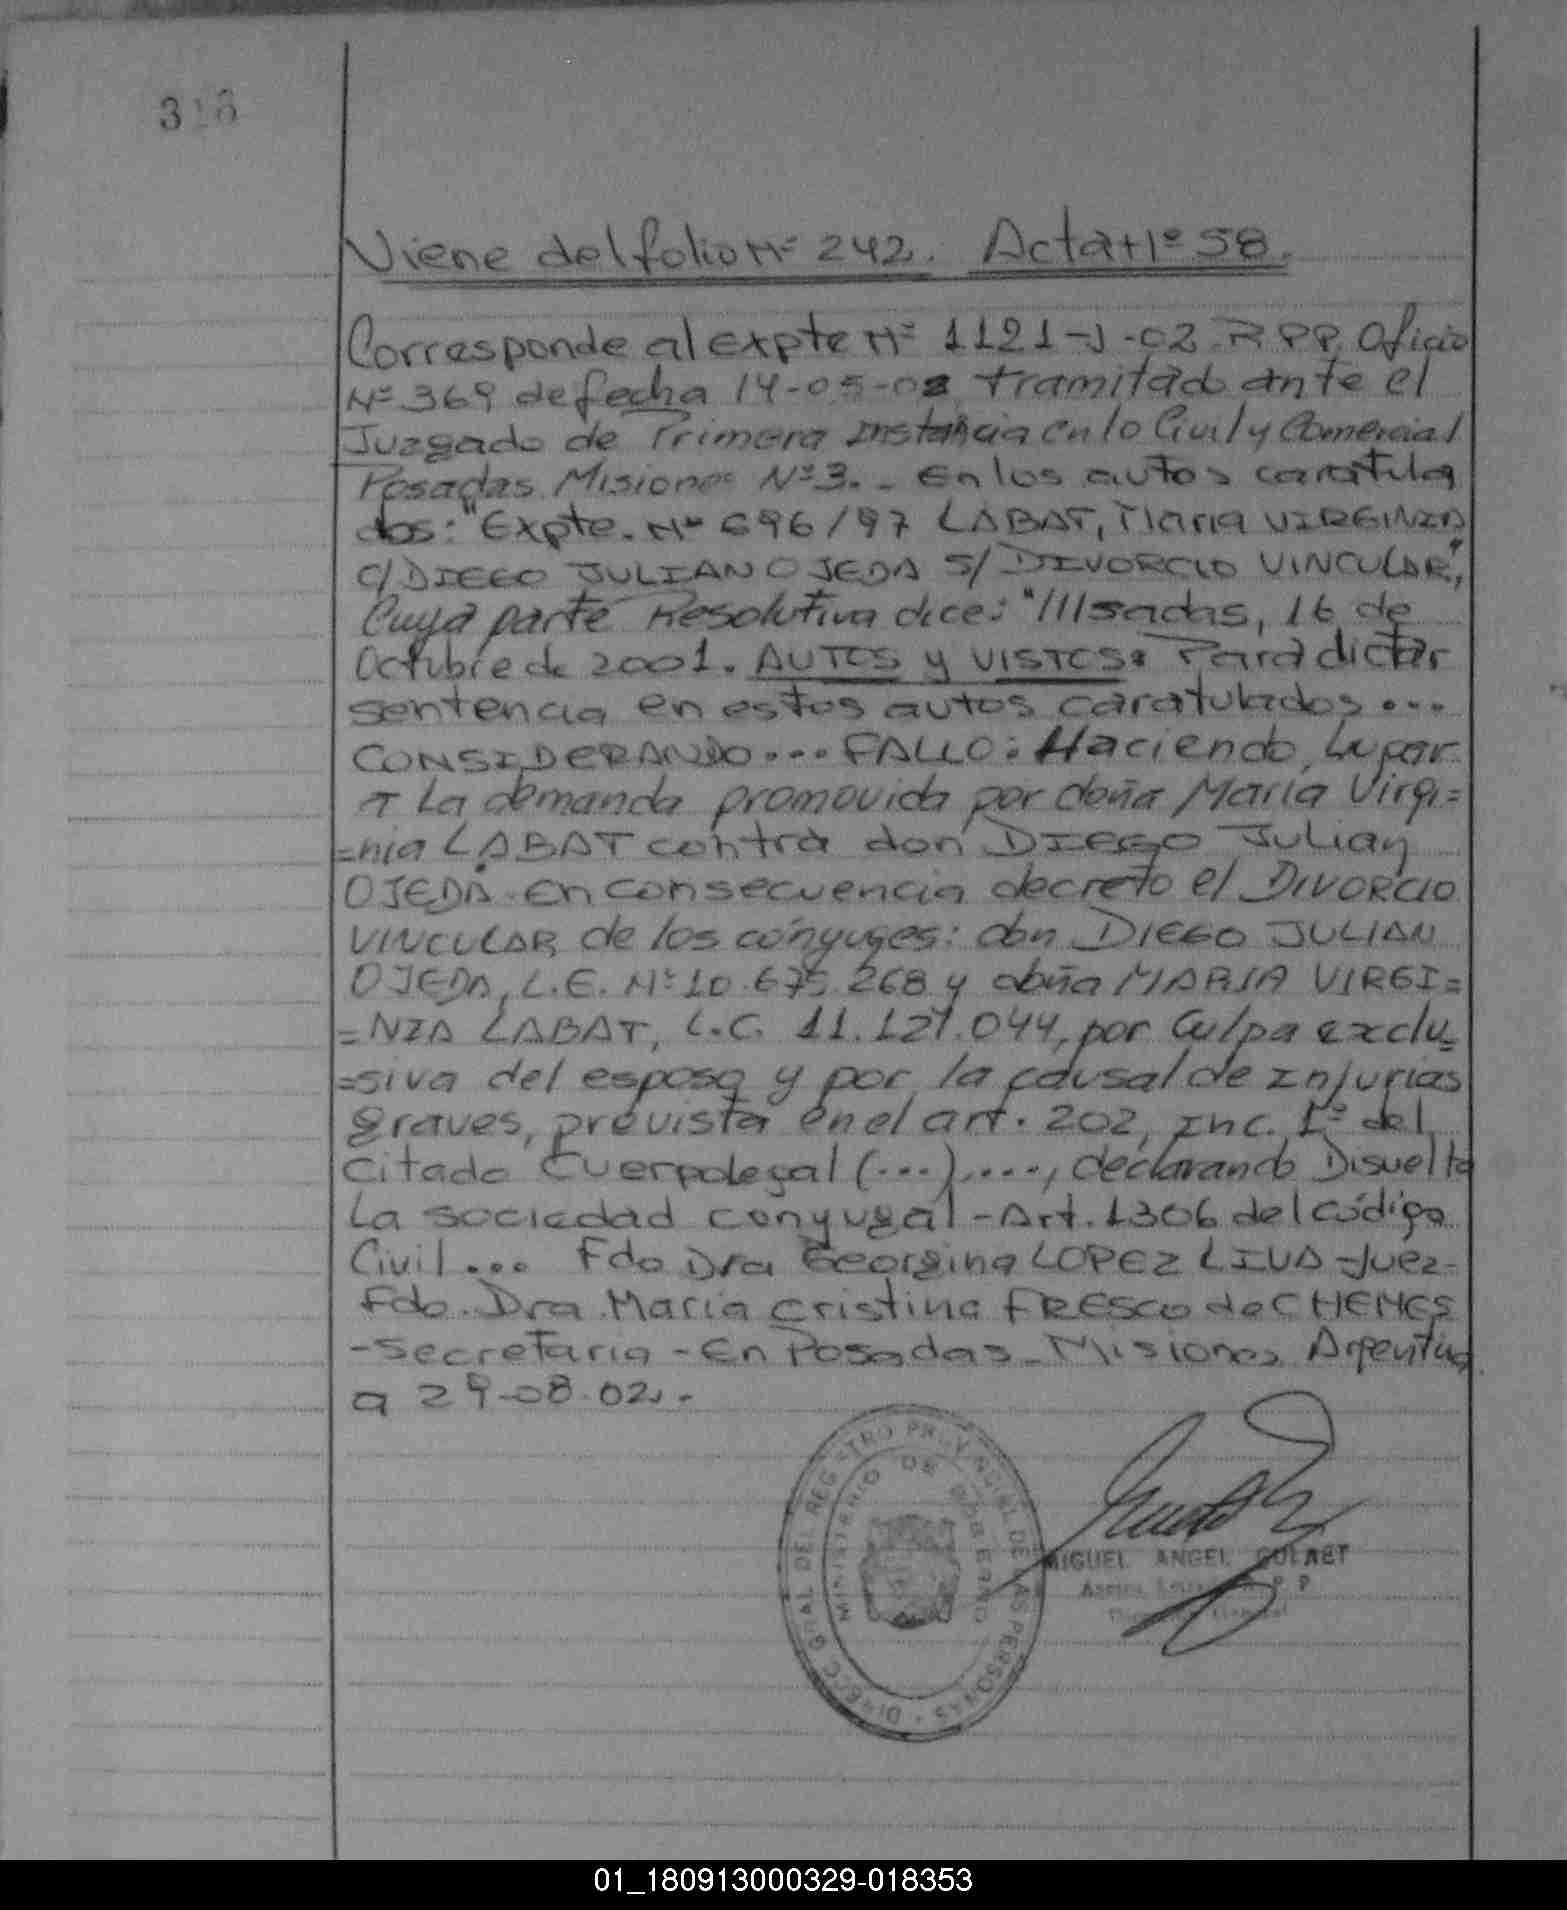 Viene del folio Nº 242. Acta Nº 58.
Corresponde al expte Nº 1121-J-02-RPP. Oficio
Nº 369 de fecha 14-05-02 tramitado ante el
Juzgado de Primera Instancia en lo Civil y Comercial
Posadas Misiones Nº 3.- En los autos caratula
dos: "Expte. Nº 696/97 LABAT, Maria VIRGINIA
c/ DIEGO JULIAN OJEDA S/ DIVORCIO VINCULAR",
Cuya parte Resolutiva dice: "///sadas, 16 de
Octubre de 2001. AUTOS y VISTOS: Para dictar
sentencia en estos autos caratulados...
CONSIDERANDO... FALLO: Haciendo Lugar
a La demanda promovida por doña María Virgi=
=nia LABAT contra don DIEGO Julian
OJEDA. En consecuencia decreto el DIVORCIO
VINCULAR de los cónyuges: don DIEGO JULIAN
OJEDA, L.E. Nº 10.675.268 y doña MARIA VIRGI=
=NIA LABAT, L.C. 11.127.044, por Culpa exclu=
=siva del esposo y por la causal de Injurias
graves, prevista en el art. 202, Inc. 1º del
citado Cuerpo legal (...)....., declarando Disuelta
La sociedad conyugal - Art. 1306 del código
Civil... Fdo Dra Georgina LOPEZ LIVA - Juez-
Fdo. Dra. Maria Cristina FRESCO de CHEMES
-Secretaria - En Posadas - Misiones Argentina
a 29-08-02.-
DIRECC GRAL DEL REGISTRO PROVINCIAL DE LAS PERSONAS
MINISTERIO DE GOBIERNO
MIGUEL ANGEL
01_180913000329-018353